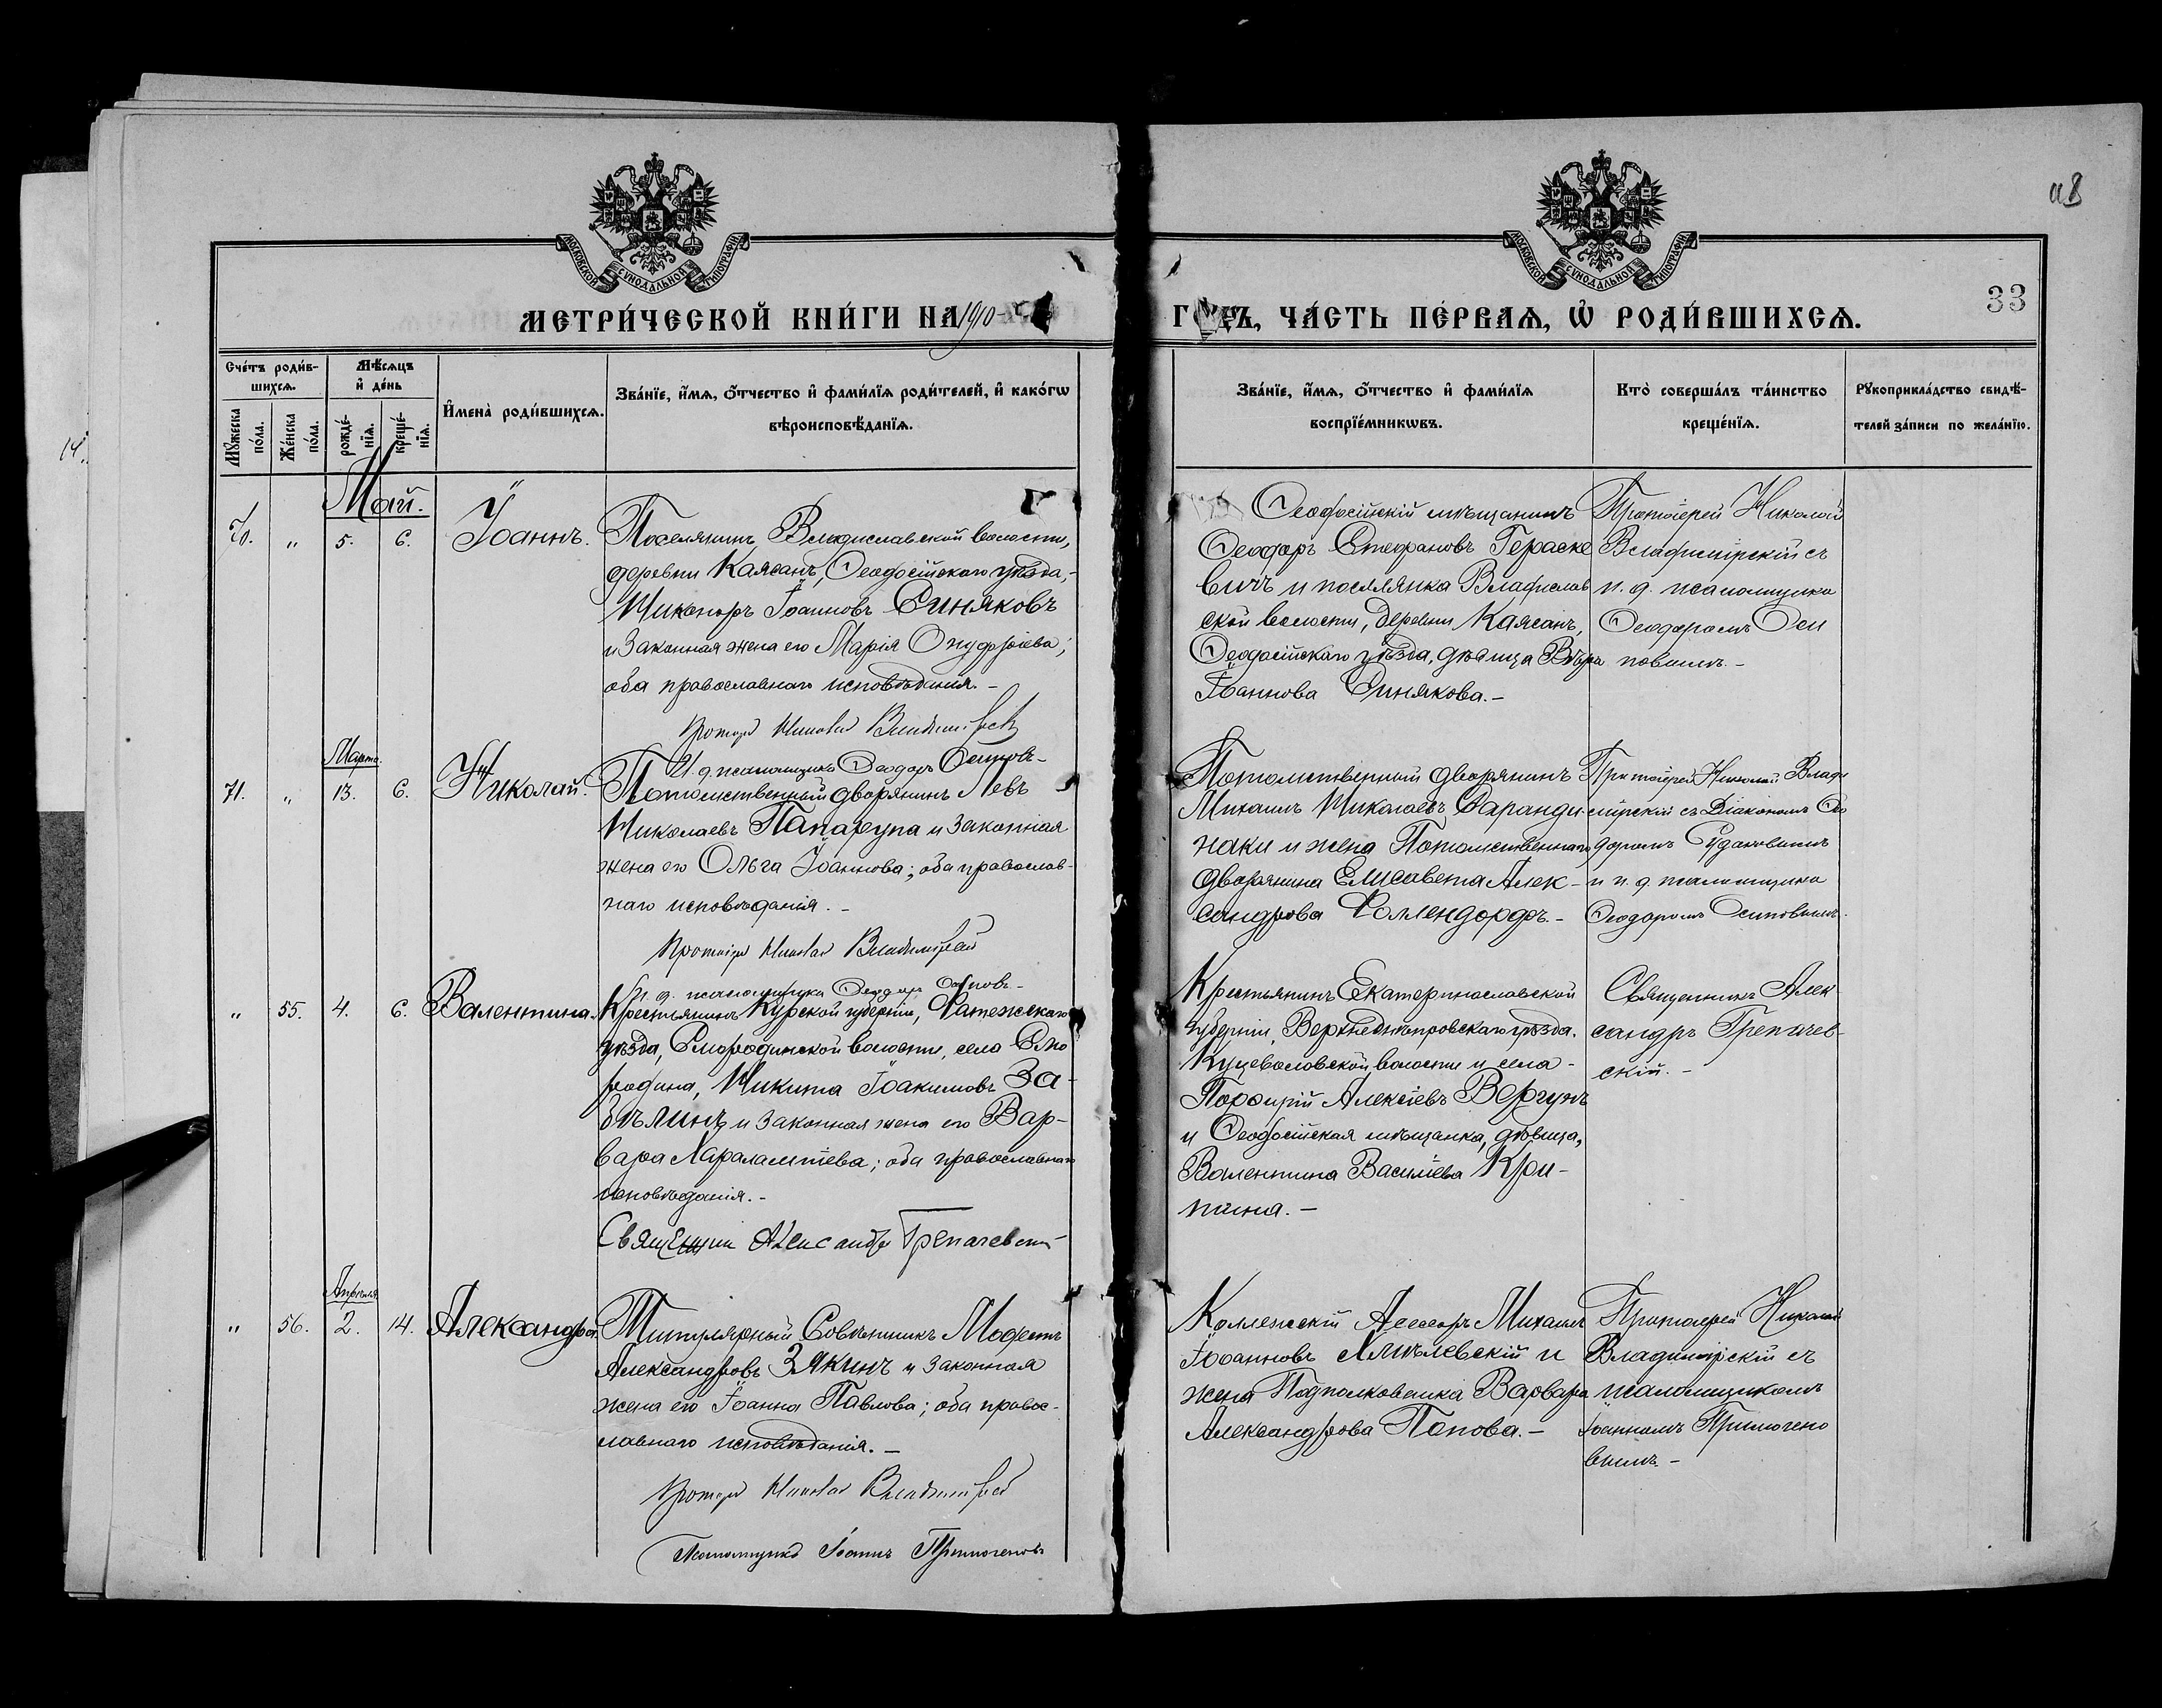 118
33
МОСКОВСКОЙ СѴНОДАЛЬНОЙ ТИПОГРАФІИ
МОСКОВСКОЙ СѴНОДАЛЬНОЙ ТИПОГРАФІИ
МЕТРИ́ЧЕСКОЙ КНИ́ГИ НА 1910
ГОДЪ, ЧА́СТЬ ПЕ́РВАѦ, Ѡ҆ РОДИ́ВШИХСѦ.
Сче́тъ роди́в-
шихсѧ.
Мѣ́сѧцъ
и҆ де́нь
Мꙋ́жеска по́ла.
Же́нска по́ла.
рожде́-
нїѧ.
креще́-
нїѧ.
И҆мена̀ роди́вшихсѧ.
Зва́нїе, и҆́мѧ, ѻ҆́тчество и҆ фами́лїѧ роди́телей, и҆ како́гѡ
вѣроисповѣ́данїѧ.
Зва́нїе, и҆́мѧ, ѻ҆́тчество и҆ фами́лїѧ
воспрїе́мникѡвъ.
Кто̀ соверша́лъ та́инство
креще́нїѧ.
Рꙋкоприкла́дство свидѣ́-
телей за́писи по жела́нїю.
Май.
70. „ 5. 6. Іоаннъ.
Поселянинъ Владиславской волости,
деревни Каясанъ, Ѳеодосійскаго уѣзда,
Никаноръ Іоанновъ Синяковъ
и законная жена его Марія Онуфріева;
оба православнаго исповѣданія. –
Протоіер Николай Владимірскій
И. д. псаломщика Ѳеодоръ Осиповъ –
Ѳеодосійскій мѣщанинъ
Ѳеодоръ Стефановъ Гераске
вичъ и поселянка Владислав
ской волости, деревни Каясанъ,
Ѳеодосійскаго уѣзда, дѣвица Вѣра
Іоаннова Синякова. –
Протоіерей Николай
Владимірскій съ
и. д. псаломщика
Ѳеодоромъ Оси
повымъ. –
Марта.
71. „ 13. 6. Николай.
Потомственный дворянинъ Левъ
Николаевъ Папарупа и законная
жена его Ольга Іоаннова; оба православ-
наго исповѣданія. –
Протоіер Николай Владимірскій
И. д. псаломщика Ѳеодоръ Осиповъ –
Потомственный дворянинъ
Михаилъ Николаевъ Саранди-
наки и жена Потомственнаго
дворянина Елисавета Алек-
сандрова Фоллендорфъ. –
Протоіерей Николай Влади
мірскій съ Діакономъ Ѳео
доромъ
и и. д. псаломщика
Ѳеодоромъ Осиповымъ.
„ 55. 4. 6. Валентина.
Крестьянинъ Курской губерніи, Фатежскаго
уѣзда, Смородинской волости, села Смо
родина, Никита Іоакимовъ За-
бѣлинъ и законная жена его Вар-
вара Харалампіева; оба православнаго
исповѣданія. –
Священник Александръ Грепачевскій
Крестьянинъ Екатеринославской
губерніи, Верхнеднѣпровскаго уѣзда.
Куцеволовской волости и села –
Порфирій Алексіевъ Вергунъ
и Ѳеодосійская мѣщанка, дѣвица,
Валентина Василіева Кри-
пина. –
Священникъ Алек-
сандръ Грепачев-
скій. –
Апрѣля
„ 56. 2. 14. Александра.
Титулярный Совѣтникъ Модестъ
Александровъ Зякинъ и законная
жена его Іоанна Павлова; оба правос-
лавнаго исповѣданія. –
Протоіер Николай Владимірскій
Псаломщикъ Іоаннъ Примогеновъ
Коллежскій Ассесоръ Михаилъ
Іоанновъ Хмѣлевскій и
жена Подполковника Варвара
Александрова Попова. –
Протоіерей Николай
Владимірскій съ
псаломщикомъ
Іоанномъ Примогено
вымъ –